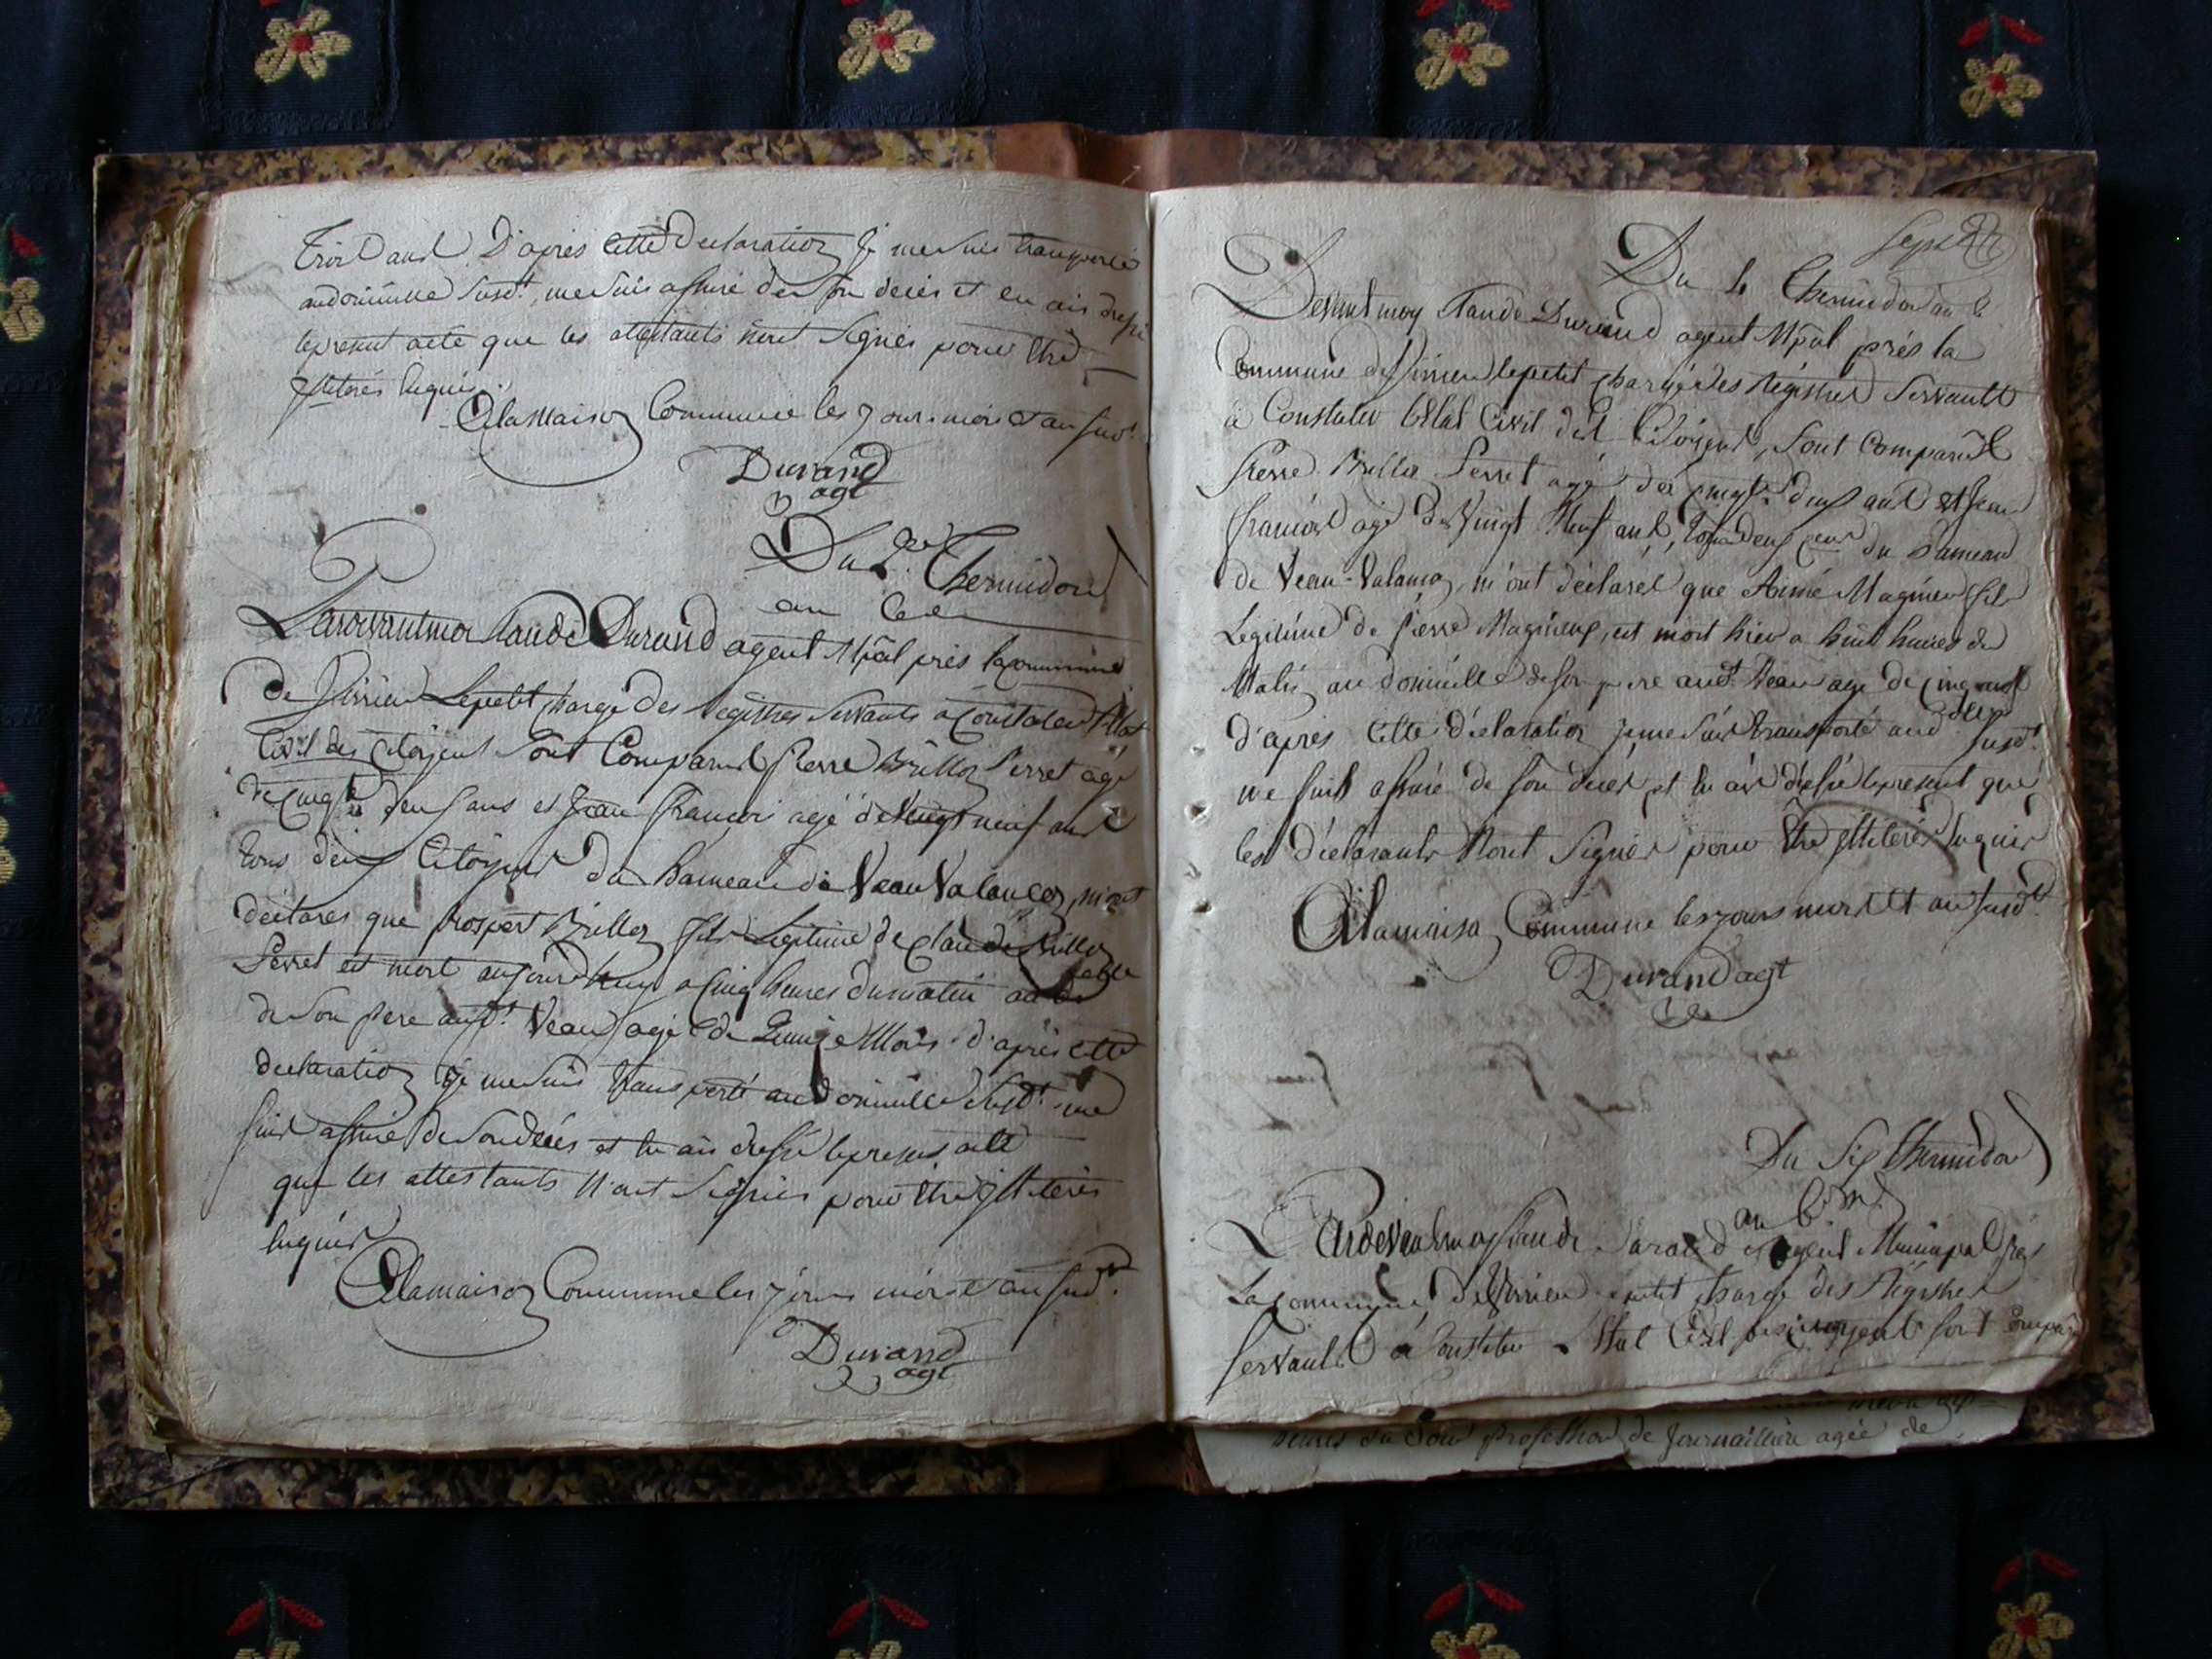 Trois ans. D'après cette declaration je me suis transporté
audomicille susdt, me suis assuré de son decés et en ais dressé
le present acte que les attestants n'ont signés pour être
illiterés Requis.
A la Maison Commune les jours mois et an susdt
Durand
agt
Du 2e Thermidor
an
Pardevant moi Claude Durand agent Mpal près la commune
de Sirieu Lepetit chargé des Registres servants a constater l'Etat
Civil des Citoyens sont Comparus Pierre Brilloz Perret agé
de cinqte deux ans et Jean François agé de vingt neuf ans
tous deux Citoyens du hameau de Veau Valancoz, m'ont
déclarés que Prosper Brilloz fils Legitime de Claude Brilloz
Perret est mort aujourd'huy a cinq heures du matin au
de son pere audt. Veau, agé de Quinze Mois. d'après cette
declaration je me suis transporté audomicille susdt. me
suis assuré de son decés et en ais dressé le present acte
que les attestants n'ont signés pour être illiterés
Requis
A la maison Commune les jours mois et an susdt.
Durand
agt
Du Thermidor an
Devant moy Claude Durand agent Mpal près la
Commune de Sirieu le petit chargé des Régistres Servants
à Constater l'Etat Civil des Citoyens, sont Comparus
Pierre Brilloz Perret agé de cinqte deux ans et Jean
François agé de Vingt Neuf ans, tous deux du hameau
de Veau-Valancoz, m'ont déclarés que Aimé Magnieu fils
Legitime de Pierre Magnieu, est mort hier a huit heures du
Matin au domicille de son pere audt. Veau agé de cinq ans
d'après cette déclaration je me suis transporté aud susdt.
me suis assuré de son decés et en ais dressé le present que
les déclarants n'ont signés pour être illiterés Requis
A la maison Commune les jours mois et an susdt.
Durand agt
Du Six Thermidor
an
Pardevant moy Claude Durand agent Municipal près
La Commune de Sirieu petit chargé des Régistres
servants à constater l'Etat Civil des citoyens sont compar
heures du Soir profession de Journaillière agée de